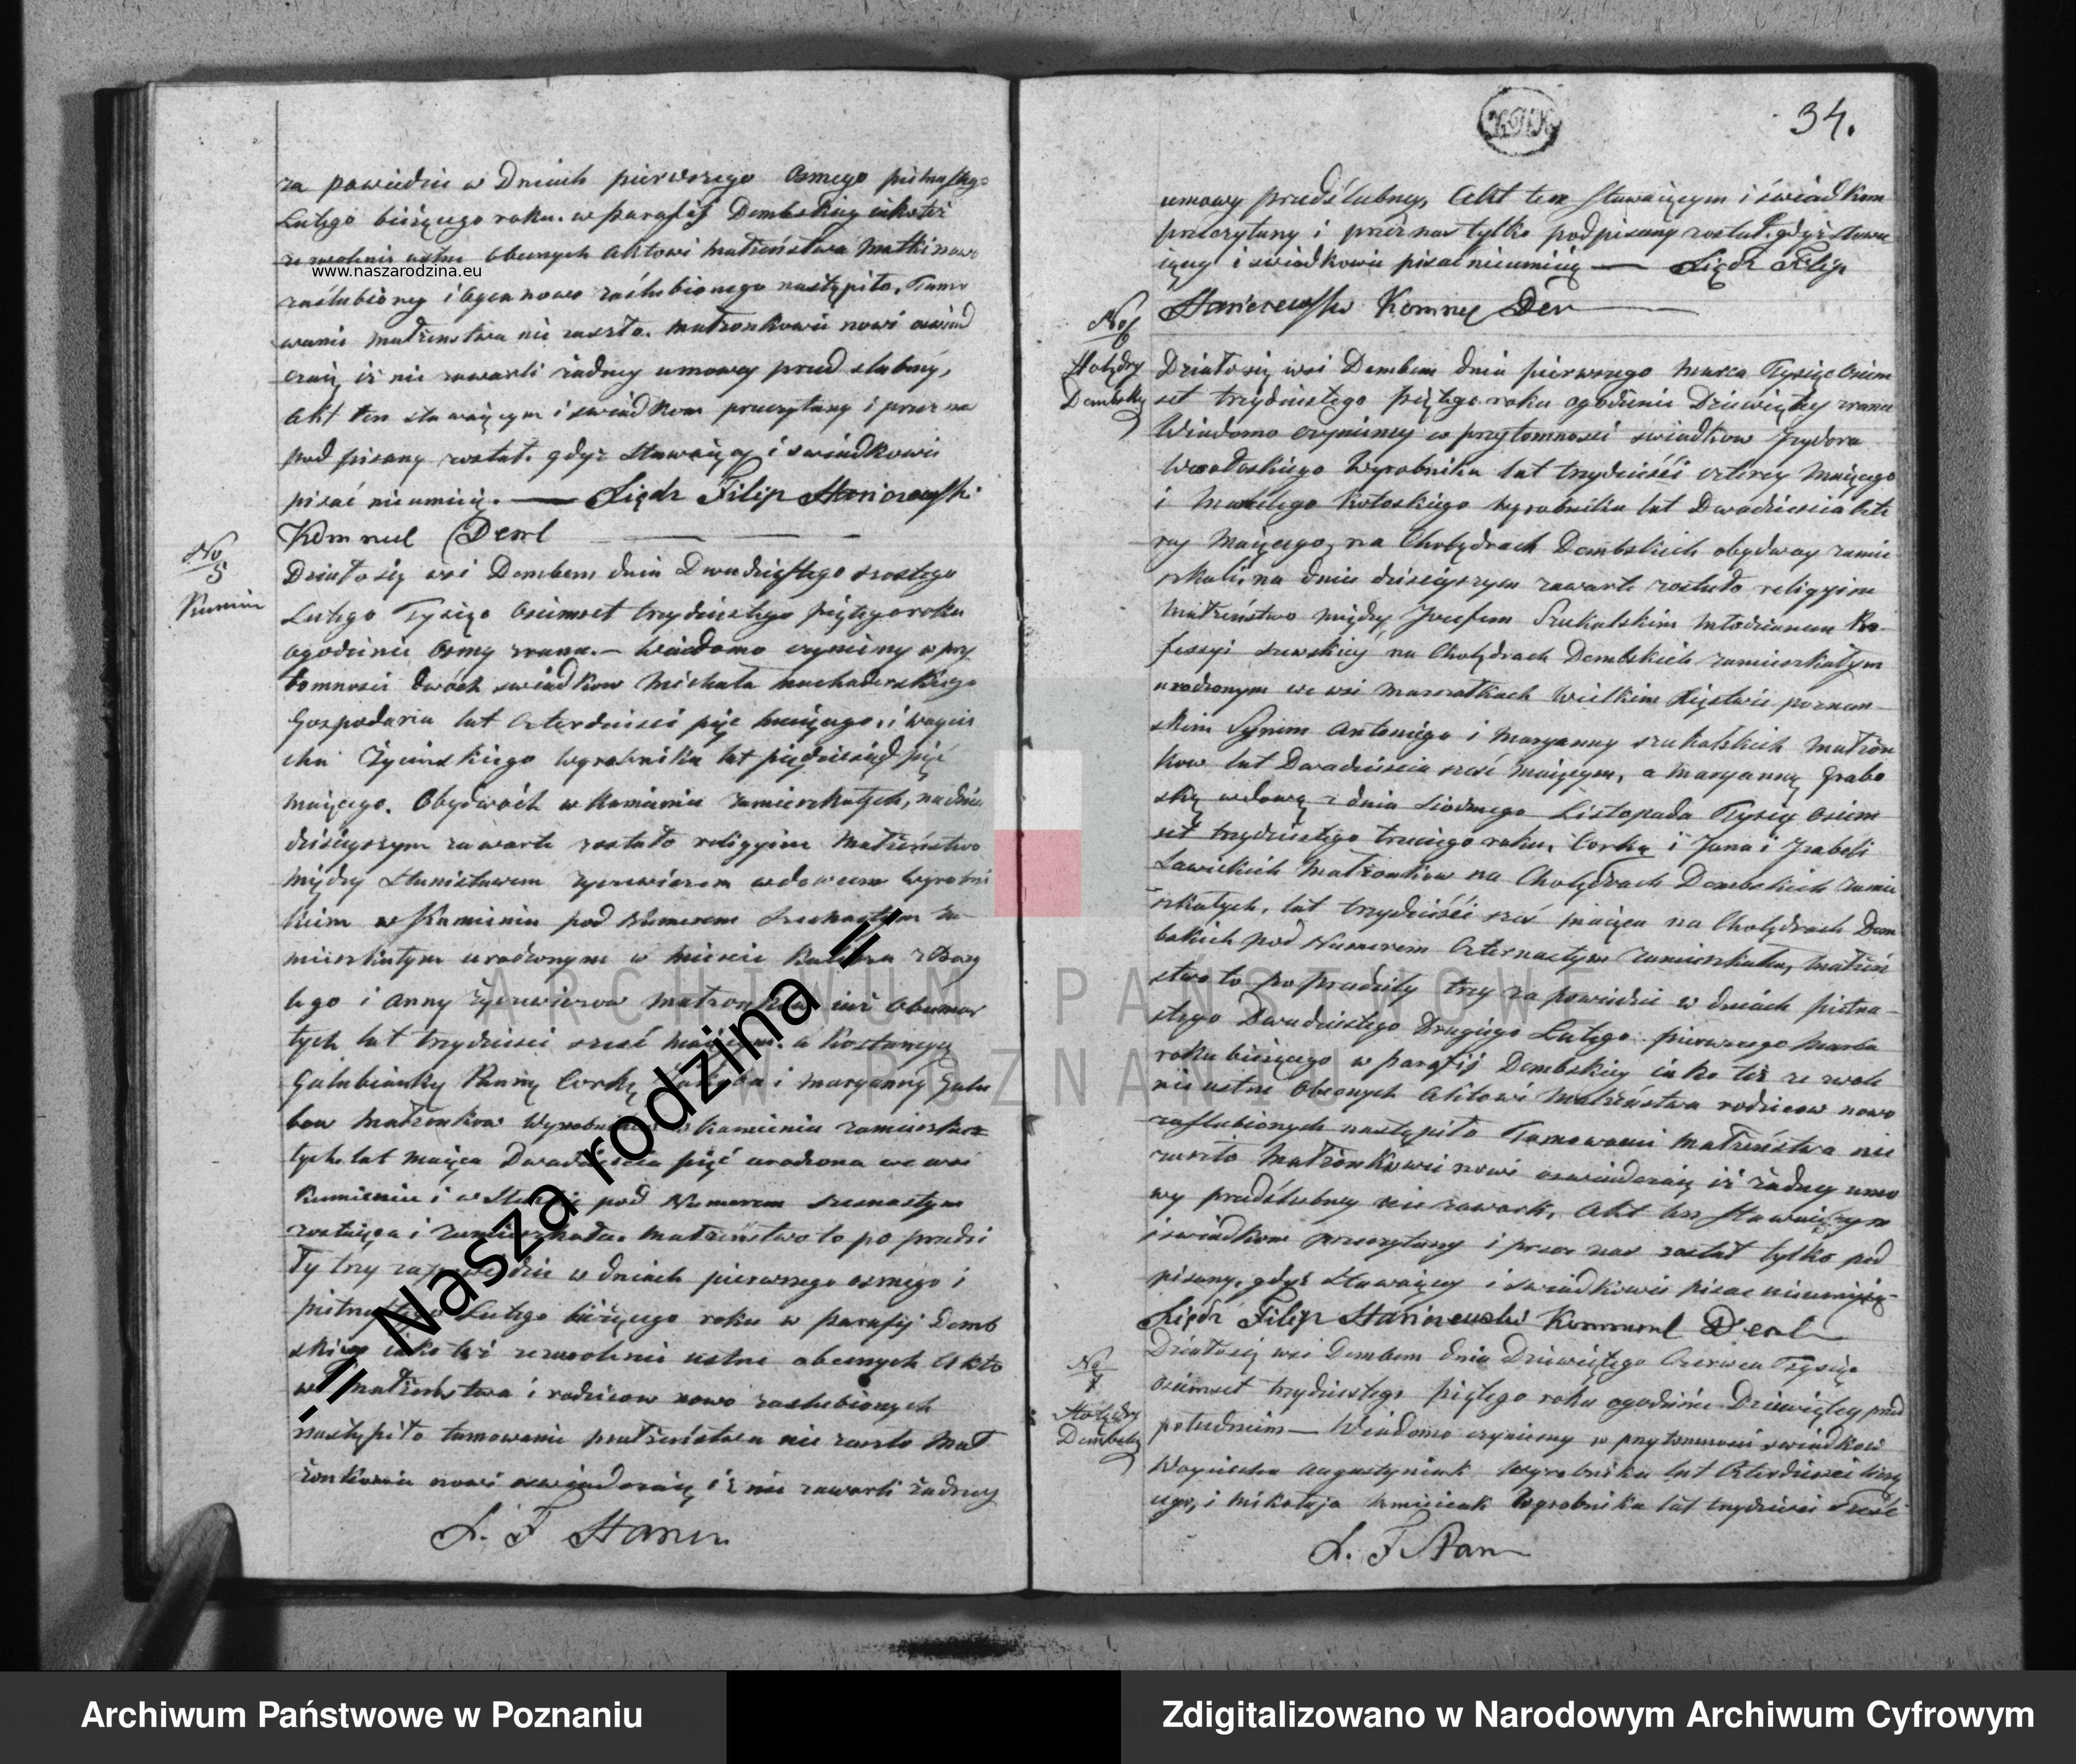 za powiedzi w Dniach pierwszego Osmego pietnastego
Lutego bieżącego roku. w parafij Dembskiey iakoteż
ze zwolenie ustne obecnych Aktowi Małżeństwa Matki nowo
www.naszarodzina.eu
zaślubioney i Oyca nowo zaślubionego nastąpiło. Tamo
wanie małżenstwa nie zaszło. Małżonkowie nowi oswiad
czaią iż nie zawarli żadney umowy przed slubney,
Akt ten stawaiącym i swiadkom przeczytany i przez nas
pod pisany został. gdyż Stawaiący i swiadkowie
pisać nieumieią. — Xiądz Filip Staniszewski
Komend Deml
No 5
Kamień
Działo się wsi Dembem dnia Dwudziestego szostego
Lutego Tysiąc Osiemset trzydziestego piątego roku
ogodzinie Osmy zrana. — Wiadomo czyniemy w przy
tomnosci dwóch swiadkow Michała
Gospodarza lat Czterdziesci pięć maiącego, i Woycie
cha Życinskiego wyrobnika lat pięćdziesiąt pięć
maiącego. Obydwóch w Kamieniu zamieszkałych, na dniu
dzisieyszym zawarte zostało religijne Małżeństwo
między Stanisławem wdowcem wyrobni
kiem w Kamieniu pod Numerem za-
mieszkałym urodzonym w miescie
i Anny Małzonkow iuż Obumar
łych lat trzydziesci sześć maiącym. a Kostancyą
Gałubianką Panną Corką Jakuba i Maryanny Gału
bow Małżonkow Wyrobnikow w Kamieniu zamieszka
łych lat maiąca Dwadziescia pięć urodzona we wsi
Kamieniu i w pod Numerem szesnastym
zostaiąca i zamieszkała. Małżeństwo to po przedzi
ły trzy zapowiedzie w dniach pierwszego osmego i
pietnastego Lutego bieżącego roku w parafij Demb
skiey iako też zezwolenie ustne obecnych Akto
wi małżeństwa i rodzicow nowo zaslubionych
nastąpiło tamowanie małżeństwa nie zaszło Mał
żonkowie nowi oswiadczaią iż nie zawarli żadney
X. F Stanisz
-= Nasza rodzina =-
34.
umowy przedślubney, Akt ten stawaiącym i świadkom
przeczytany i przez nas tylko podpisany został. gdyż stawa
iący i swiadkowie pisać nieumieią — Xiądz Filip
Staniszewski Komend Dem
No 6
Holędry
Dembskie
Działo się wsi Dembem dnia pierwszego Marca Tysiąc Osiem
set trzydziestego Piątego roku ogodzinie Dziewiątey zrana
Wiadomo czyniemy w przytomnosci swiadkow Jzydora
Wyrobnika lat trzydzieści cztery Maiącego
i wyrobnika lat Dwadziescia
ry Maiącego, na Cholędrach Dembskich obydway zamie
szkali, na dniu dzisieyszym zawarte zostało religijne
Małżeństwo między Jozefem Szukalskim Młodzianem
fessyi szewskiey, na Cholędrach Dembskich zamieszkałym
urodzonym we wsi Marszałkach Wielkim Xięstwie poznan-
skim Synem Antoniego i Maryanny szukalskich Małżon
kow lat Dwadziescia sześć maiącym, a Maryanną Grabo
ską wdową z dnia siodmego Listopada Tysiąc Osiem
set trzydziestego trzeciego roku, Corką i Jana i Jzabeli
Sawickich Małżonkow na Cholędrach Dembskich zamie
szkałych, lat trzydzieści sześć maiąca na Cholędrach Dem
bskich pod Numerem Czternastym zamieszkała, Małżeń
stwo to po przedziły trzy za powiedzie w dniach pietna-
stego Dwudziestego Drugiego Lutego pierwszego Marca
roku bieżącego w parafij Dembskiey iako też ze zwole
nie ustne Obecnych Aktowi Małżeństwa rodzicow nowo
zaślubionych nastąpiło Tamowanie Małżeństwa nie
zaszło Małżonkowie nowi oswiadczaią iż żadney umo
wy przedślubney nie zawarli, Akt ten stawaiącym
i swiadkom przeczytany i przez nas został tylko pod
pisany, gdyż stawaiący i swiadkowie pisac nieumieią-
Xiądz Filip Staniszewski Komend Deml
No 7
Holędry
Dembskie
Działo się wsi Dembem dnia Dziewiątego Czerwca Tysiąc
osiemset trzydziestego piątego roku ogodzinie Dziewiątey przed
południem — Wiadomo czyniemy w przytomnosci swiadkow
Woyciecha Augustyniak Wyrobnika lat Czterdziesci
cego, i Mikołaja Wyrobnika lat trzydziesci sześć
X. F Stan
ARCHIWUM PAŃSTWOWE
W POZNANIU
Archiwum Państwowe w Poznaniu
Zdigitalizowano w Narodowym Archiwum Cyfrowym